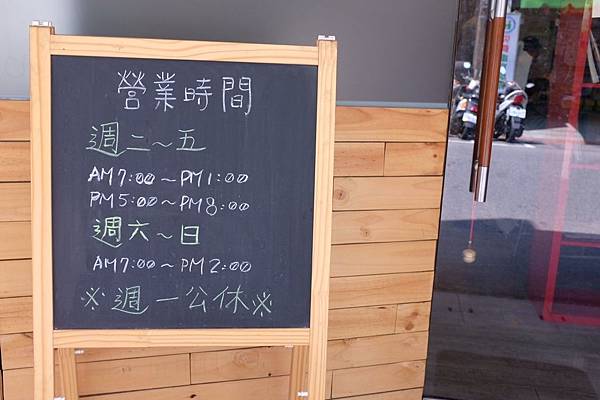 營業時間
週二～五
AM7:00～PM1:00
PM5:00～PM8:00
週六～日
AM7:00～PM2:00
※週一公休※